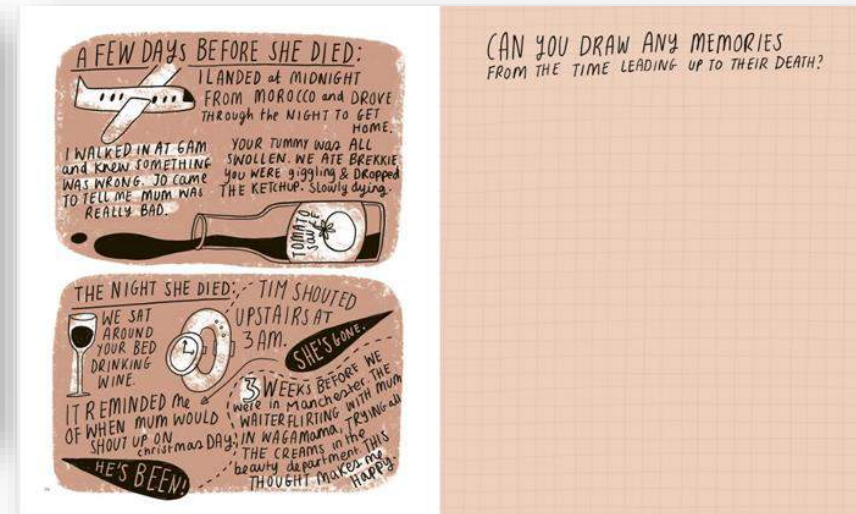 A FEW DAYS BEFORE SHE DIED:
I LANDED at MIDNIGHT
FROM MOROCCO and DROVE
THROUGH the NIGHT TO GET
HOME.
I WALKED IN AT 6AM
and KNEW SOMETHING
WAS WRONG. JO CAME
TO TELL ME MUM WAS
REALLY BAD.
YOUR TUMMY WAS ALL
SWOLLEN. WE ATE BREKKIE
YOU WERE giggling & DROPPED
THE KETCHUP. Slowly dying.
TOMATO
SAUCE
THE NIGHT SHE DIED:
WE SAT
AROUND
YOUR BED
DRINKING
WINE.
TIM SHOUTED
UPSTAIRS AT
3 AM.
SHE'S GONE.
IT REMINDED me
OF WHEN MUM WOULD
SHOUT UP ON
christmas DAY:
HE'S BEEN!
3 WEEKS BEFORE WE
were in Manchester. THE
WAITER FLIRTING WITH MUM
IN WAGAMAMA, TRYING all
THE CREAMS in the
beauty department. THIS
THOUGHT makes me
HAPPY.
CAN YOU DRAW ANY MEMORIES
FROM THE TIME LEADING UP TO THEIR DEATH?